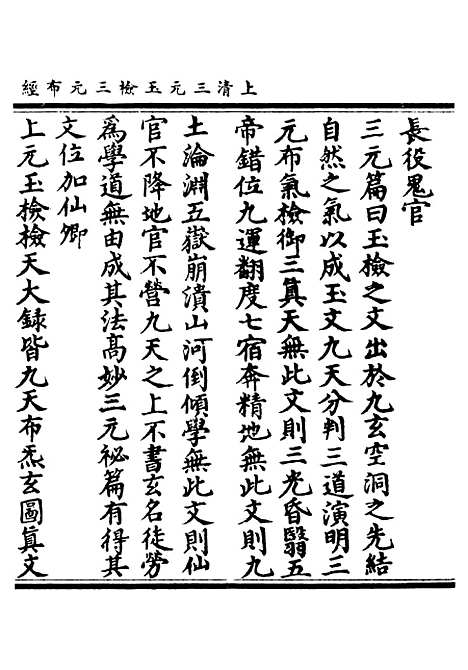 上清三元玉檢三元布經
長役鬼官
三元篇曰玉檢之文出於九玄空洞之先結
自然之氣以成玉文九天分判三道演明三
元布氣檢御三真天無此文則三光昏翳五
帝錯位九運翻度七宿奔精地無此文則九
土淪淵五嶽崩潰山河倒傾學無此文則仙
官不降地官不營九天之上不書玄名徒勞
為學道無由成其法高妙三元祕篇有得其
文位加仙卿
上元玉檢檢天大錄皆九天布炁玄圖真文